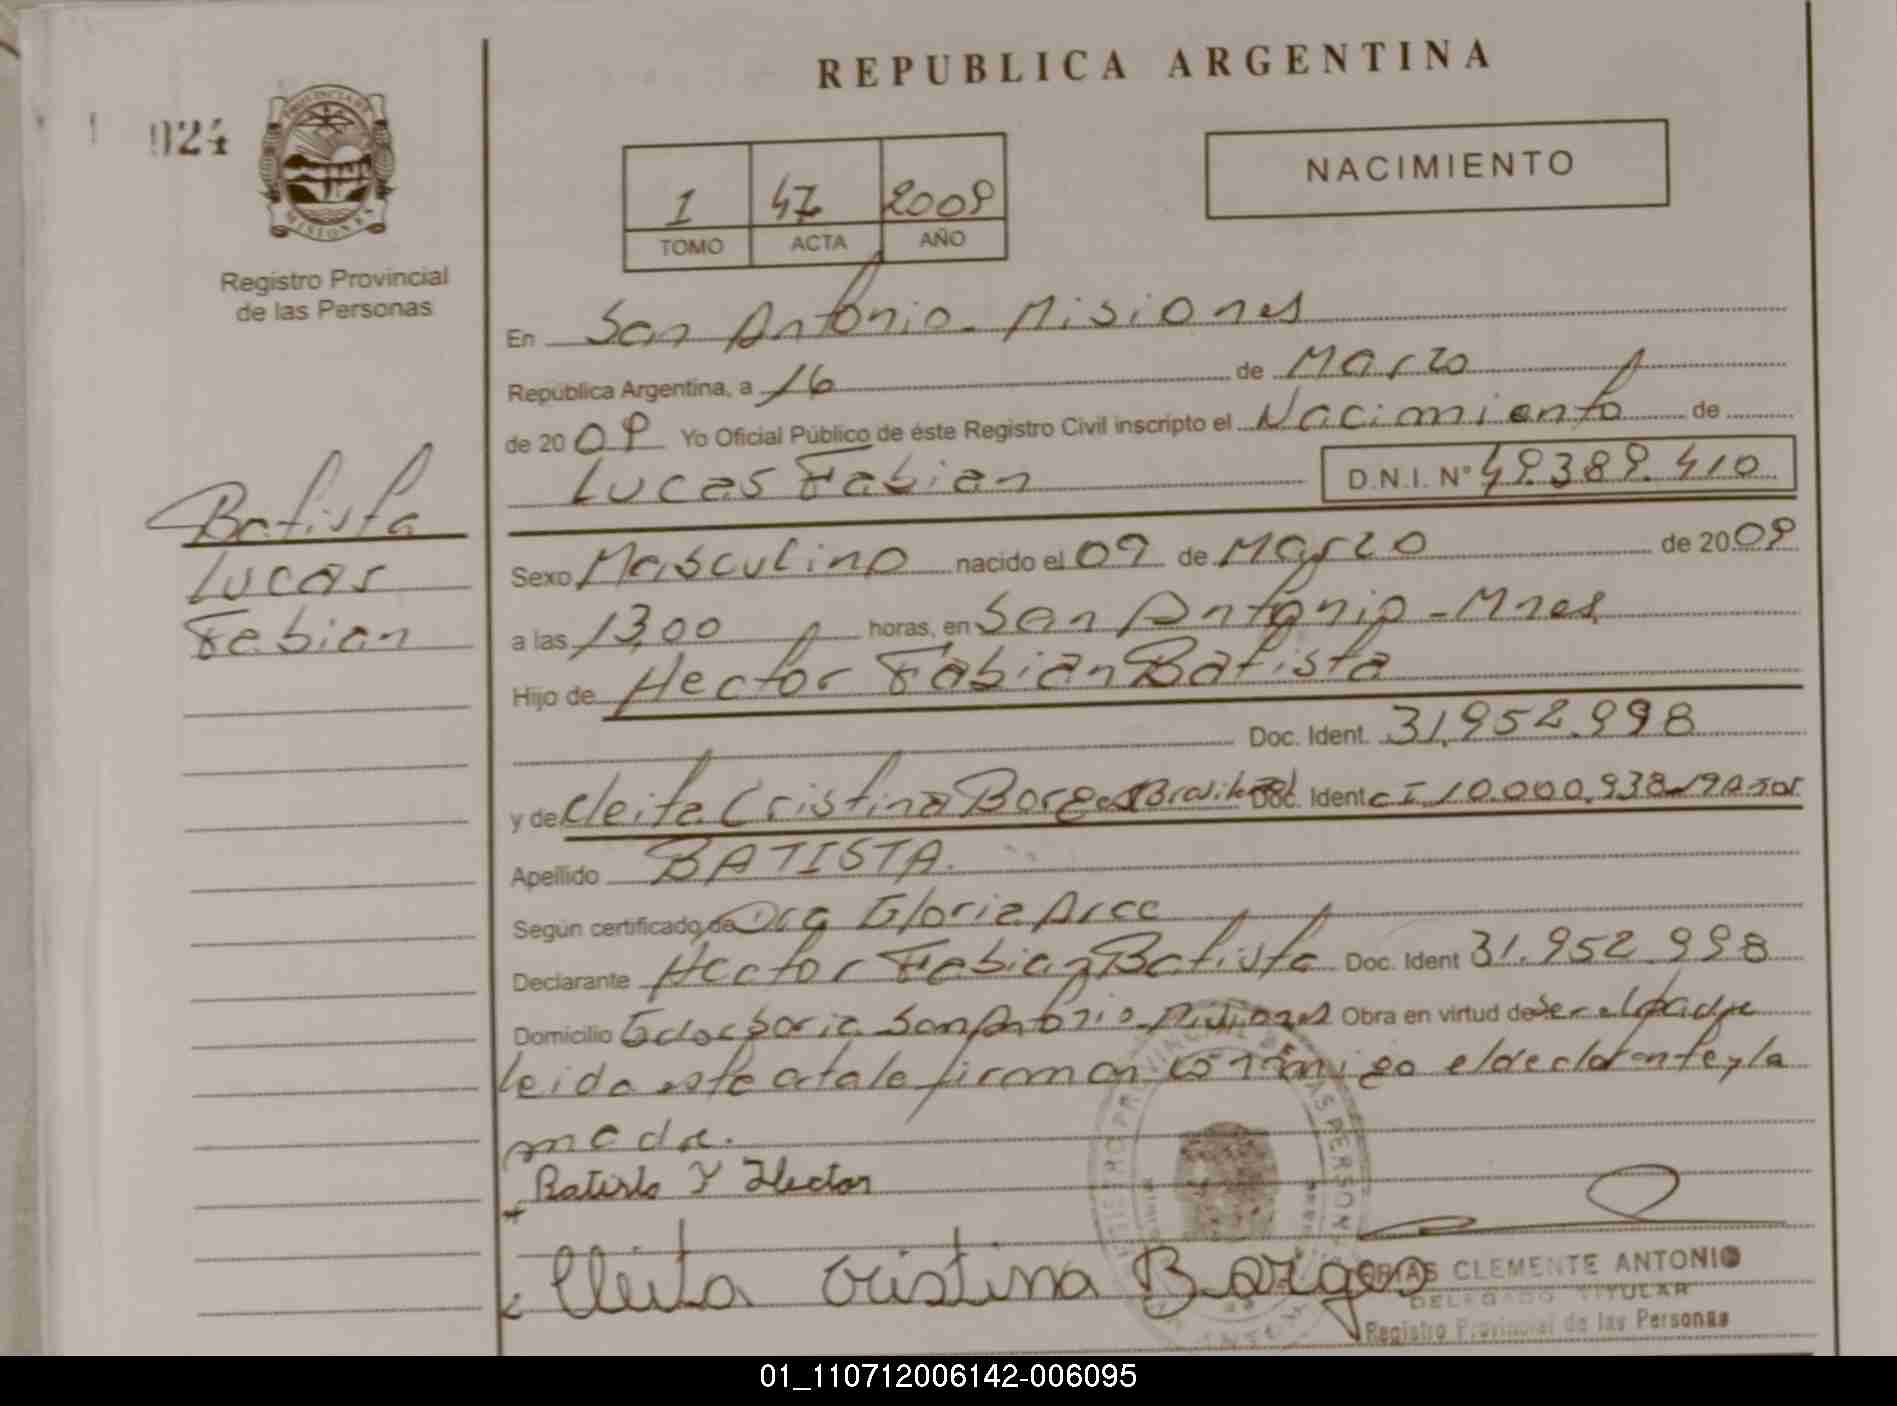 REPUBLICA ARGENTINA
024
PROVINCIA DE MISIONES
Registro Provincial
de las Personas
NACIMIENTO
1 47 2009
TOMO ACTA AÑO
En San Antonio - Misiones
Republica Argentina, a 16 de Marzo
de 2009 Yo Oficial Público de éste Registro Civil inscripto el Nacimiento de
Lucas Fabian D.N.I. Nº 49.389.410
Batista
Lucas
Fabian
Sexo Masculino nacido el 09 de Marzo de 2009
a las 13,00 horas, en San Antonio - Mnes
Hijo de Hector Fabian Batista
Doc. Ident. 31.952.998
y de Cleita Cristina Borges Doc. Ident CI 10.000.938
Apellido BATISTA.
Según certificado de Dra Gloria Arce
Declarante Hector Fabian Batista Doc. Ident 31.952.998
Domicilio San Antonio - Misiones Obra en virtud de Ser el padre
leida esta acta la firman conmigo el declarante y la
madre.
Batista Y Hector
Cleita Cristina Borges
CLEMENTE ANTONIO
DELEGADO TITULAR
Registro Provincial de las Personas
01_110712006142-006095